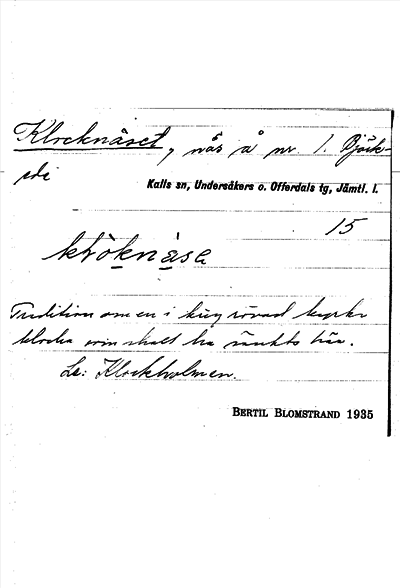 Klocknäset, näs å nr 1. Björk-
ede
Kalls sn, Undersåkers o. Offerdals tg, Jämtl. l.
15
Tradition om en i krig rövad kyrk-
klocka som skall ha sänkts här.
Se: Klockholmen.
BERTIL BLOMSTRAND 1935